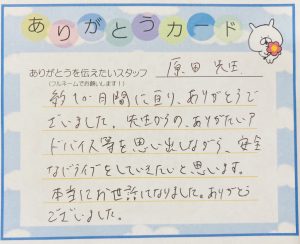 ありがとうカード
ありがとうを伝えたいスタッフ 原田 先生
(フルネームでお願いします!)
約1か月間に亘り、ありがとうご
ざいました。先生からの、ありがたいア
ドバイス等を思い出しながら、安全
なドライブをしていきたいと思います。
本当にお世話になりました。ありがとう
ございました。